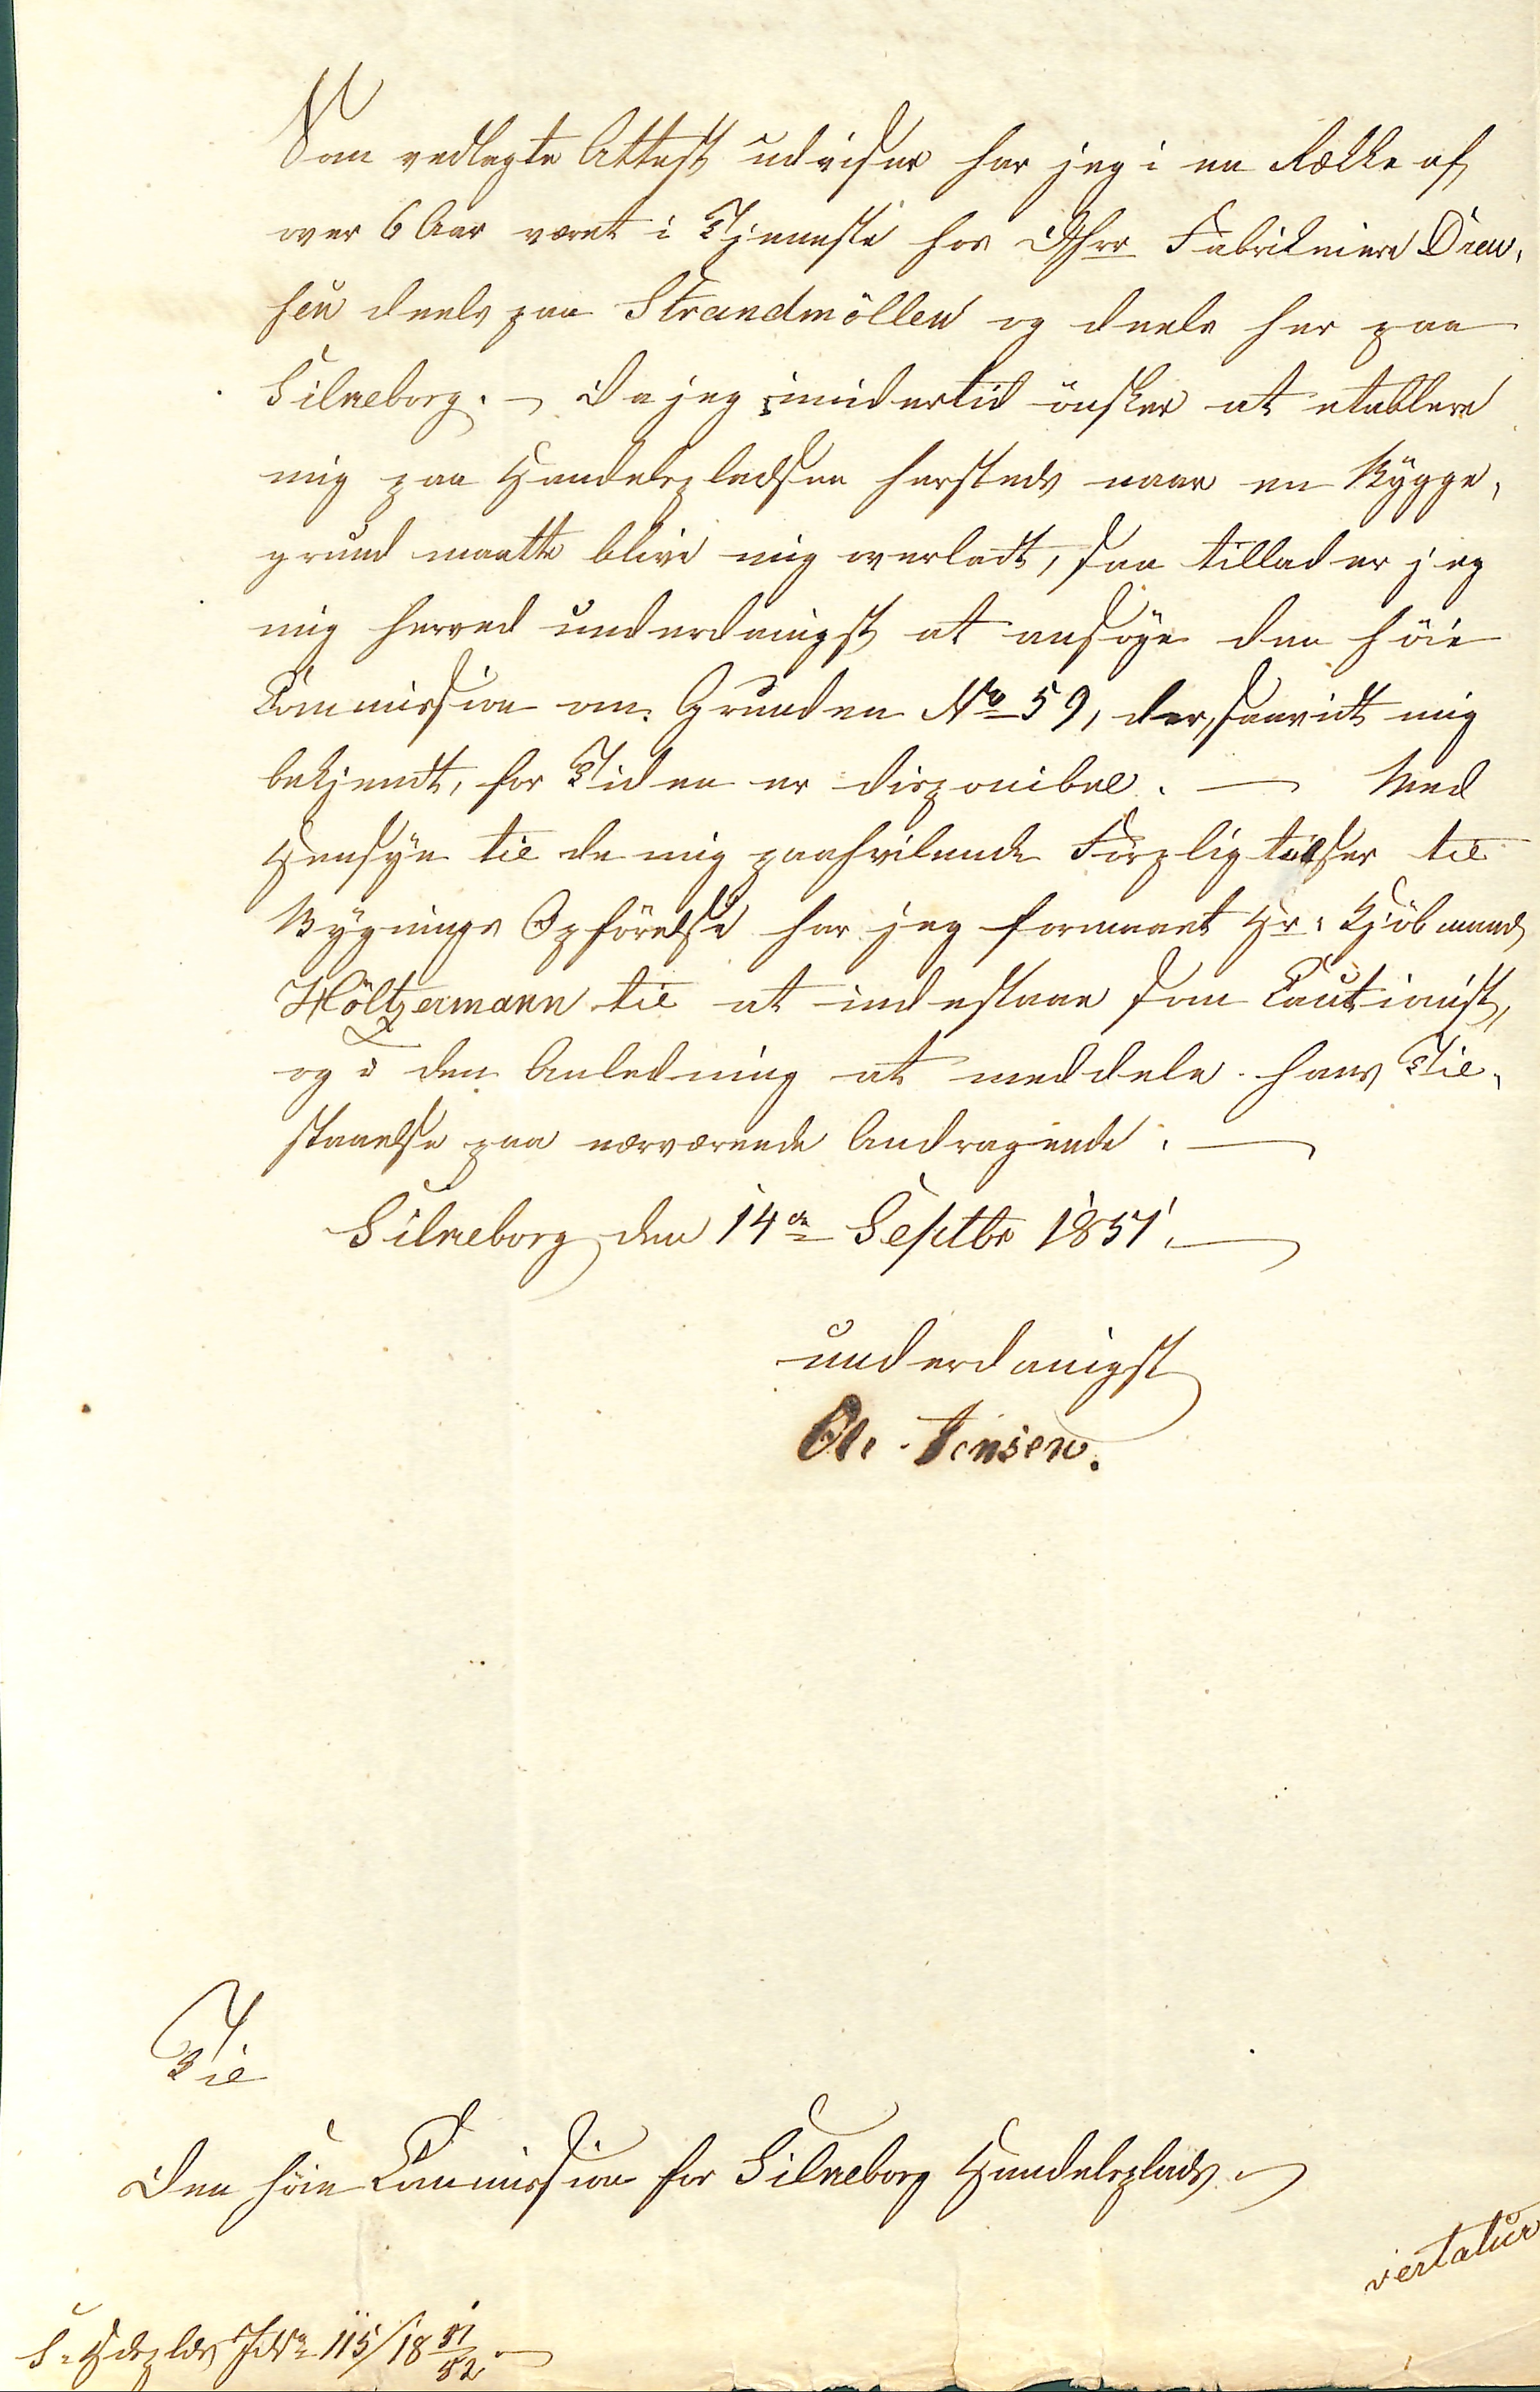 Som vedlagte Attest udviser har jeg i en Række af
over 6 Aar været i Tjeneste hos DHrr Fabrikeiere Drew,
sen deels paa Strandmöllen og deels her paa
Silkeborg. – Da jeg imidertid önsker at etablere
mig paa Handelspladsen hersteds naar en Bygge,
grund maatte blive mig overladt, saa tillader jeg
mig herved underdanigst at ansöge den höie
Commission om Grunden No 59, der, saavidt mig
bekjendt, for Tiden er disponibel. — Med
Hensyn til de mig paahvilende Forpligtelser til
Bygnings Opförelse har jeg formaaet Hr. Kjöbmand
Höltzermann til at indestaae som Cautionist,
og i den Anledning at meddele hans Til,
staaelse paa nærværende Andragende. —
Silkeborg den 14de Septbr 1851. —
underdanigst
Jensen.
Til
Den höie Commission for Silkeborg Handelsplads. –
vertatur
S. Hdsplds J No 115/18 51/52 –